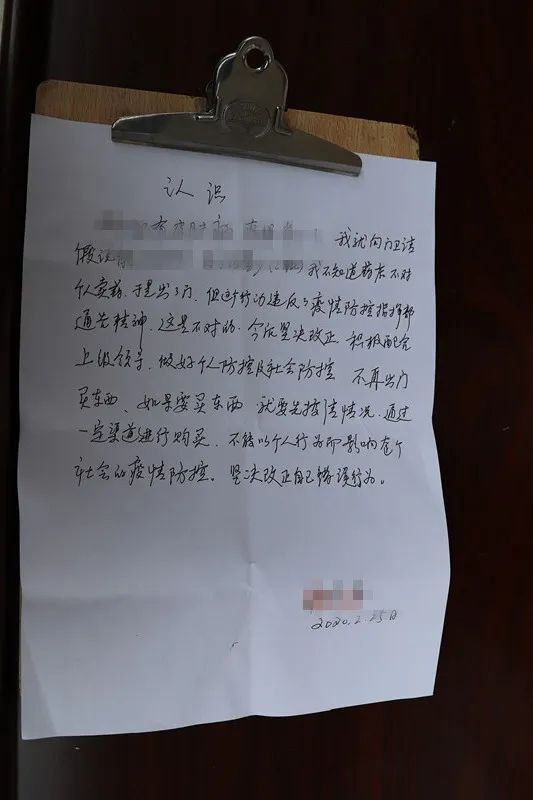 认识
我就向门卫请
假说
我不知道药店不对
个人卖药，于是出了门，但这行动违反了疫情防控指挥部
通告精神，这是不对的，今后坚决改正，积极配合
上级领导，做好个人防控及社会防控 不再出门
买东西、如果要买东西 就要先报请情况，通过
一定渠道进行购买，不能以个人行为而影响整个
社会的疫情防控。坚决改正自己错误行为。
2020.2.25日